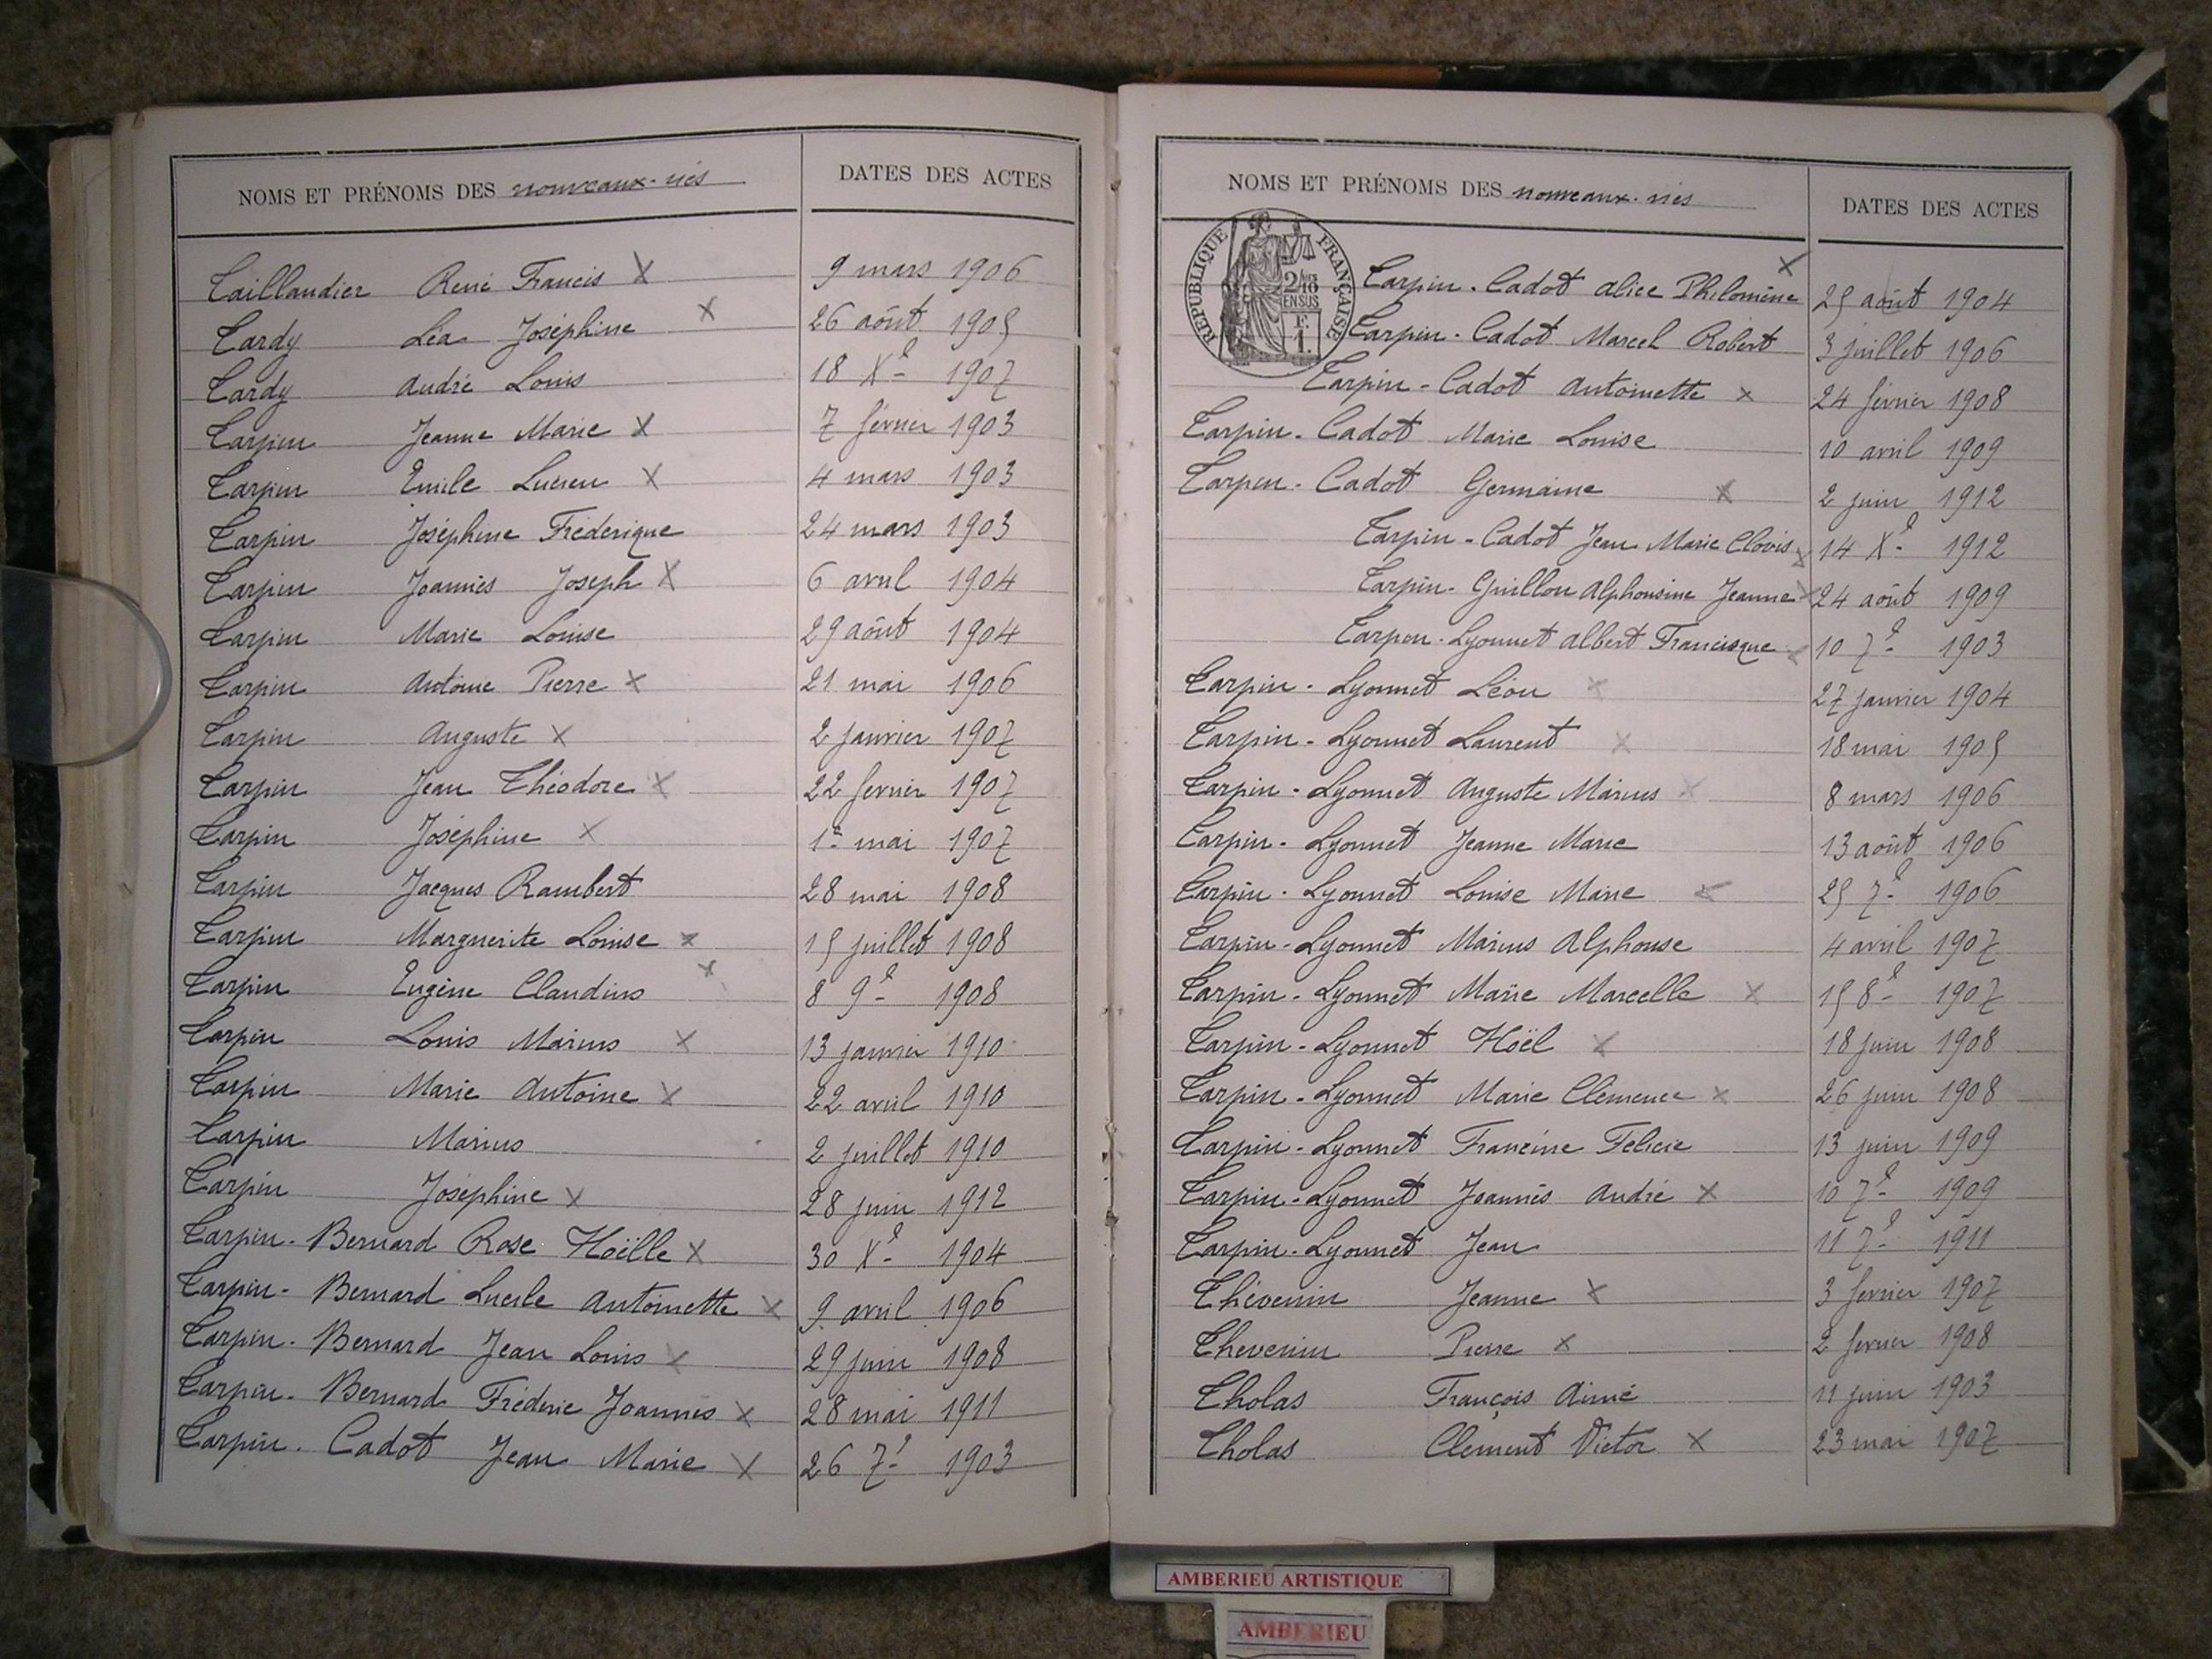 NOMS ET PRÉNOMS DES nouveaux-nés DATES DES ACTES
Taillandier René Francis X 9 mars 1906
Tardy Léa Joséphine X 26 août 1905
Tardy André Louis 18 Xe 1907
Tarpin Jeanne Marie X 7 février 1903
Tarpin Emile Lucien X 4 mars 1903
Tarpin Joséphine Fréderique 24 mars 1903
Tarpin Joannès Joseph X 6 avril 1904
Tarpin Marie Louise 29 août 1904
Tarpin Antoine Pierre X 21 mai 1906
Tarpin Auguste X 2 janvier 1907
Tarpin Jean Théodore X 22 fevrier 1907
Tarpin Joséphine X 1er mai 1907
Tarpin Jacques Rambert 28 mai 1908
Tarpin Marguerite Louise X 15 juillet 1908
Tarpin Eugène Claudius X 8 9e 1908
Tarpin Louis Marius X 13 janvier 1910
Tarpin Marie Antoine X 22 avril 1910
Tarpin Marius 2 juillet 1910
Tarpin Joséphine X 28 juin 1912
Tarpin-Bernard Rose Noëlle X 30 Xe 1904
Tarpin-Bernard Lucile Antoinette X 9 avril 1906
Tarpin-Bernard Jean Louis X 29 juin 1908
Tarpin-Bernard Fréderic Joannès X 28 mai 1911
Tarpin-Cadot Jean Marie X 26 7e 1903
NOMS ET PRÉNOMS DES nouveaux-nés DATES DES ACTES
RÉPUBLIQUE FRANÇAISE
2/10 EN SUS
F.
1.
Tarpin-Cadot Alice Philomène X 25 août 1904
Tarpin-Cadot Marcel Robert 3 juillet 1906
Tarpin-Cadot Antoinette X 24 février 1908
Tarpin-Cadot Marie Louise 10 avril 1909
Tarpin-Cadot Germaine X 2 juin 1912
Tarpin-Cadot Jean Marie Clovis X 14 Xe 1912
Tarpin-Guillon Alphonsine Jeanne X 24 août 1909
Tarpin-Lyonnet Albert Francisque X 10 7e 1903
Tarpin-Lyonnet Léon X 27 janvier 1904
Tarpin-Lyonnet Laurent X 18 mai 1905
Tarpin-Lyonnet Auguste Marius X 8 mars 1906
Tarpin-Lyonnet Jeanne Marie 13 août 1906
Tarpin-Lyonnet Louise Marie X 25 7e 1906
Tarpin-Lyonnet Marius Alphonse 4 avril 1907
Tarpin-Lyonnet Marie Marcelle X 15 8e 1907
Tarpin-Lyonnet Noël X 18 juin 1908
Tarpin-Lyonnet Marie Clémence X 26 juin 1908
Tarpin-Lyonnet Francine Félicie 13 juin 1909
Tarpin-Lyonnet Joannès André X 10 7e 1909
Tarpin-Lyonnet Jean 11 7e 1911
Thévenin Jeanne X 3 fevrier 1907
Thevenin Pierre X 2 fevrier 1908
Tholas François Aimé 11 juin 1903
Tholas Clément Victor X 23 mai 1907
AMBERIEU ARTISTIQUE
AMBERIEU